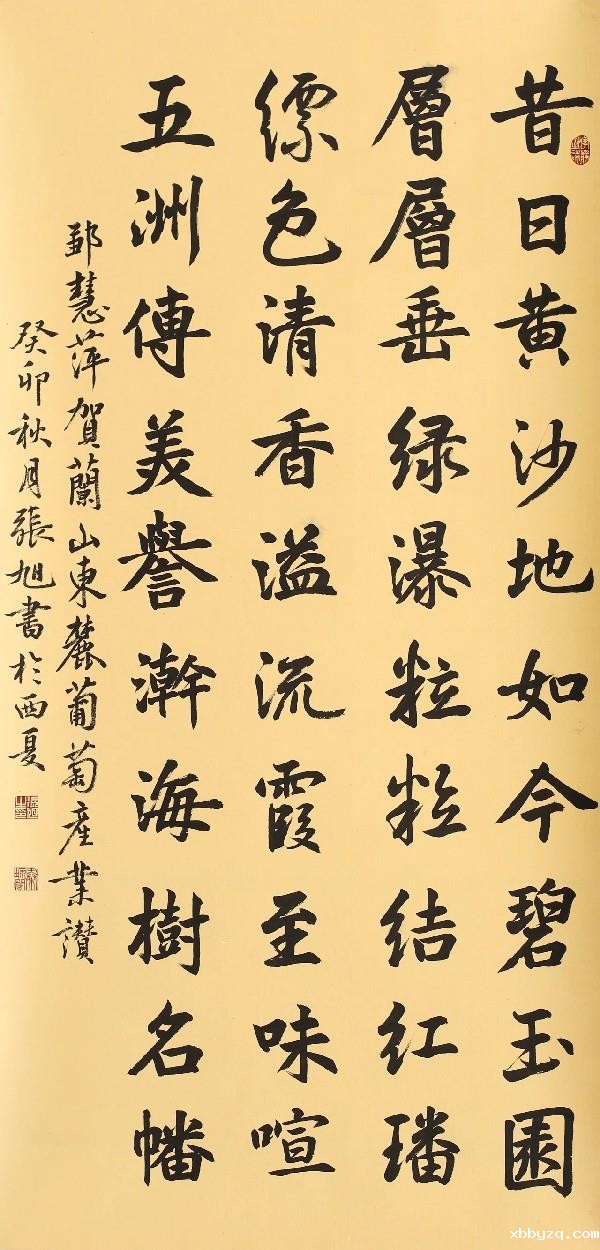 昔日黄沙地如今碧玉園
層層垂绿瀑粒粒结红璠
缥色清香溢流霞至味喧
五洲傳美譽瀚海樹名幡
鄞慧萍賀蘭山東麓葡萄産業讃
癸卯秋月張旭書於西夏
xbbyzq.com